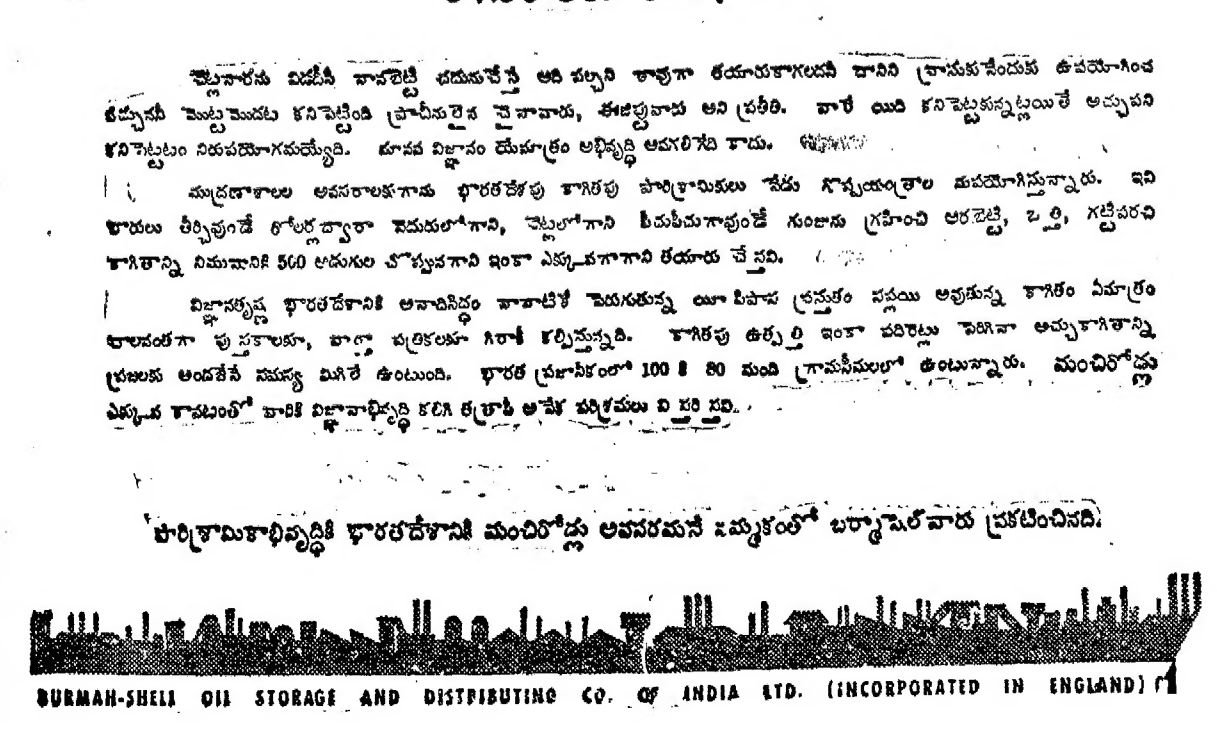 చెట్లనారను విడదీసి నానబెట్టి చదునుచేస్తే అది పల్చని కావుగా తయారుకాగలదని దానిని వ్రానుకునేందుకు ఉపయోగించ
వచ్చునని మొట్టమొదట కనిపెట్టింది ప్రాచీనులైన చైనావారు, ఈజిప్టువారు అని ప్రతీతి. వారే యిది కనిపెట్టకున్నట్లయితే అచ్చుపని
కనిపెట్టటం నిరుపయోగమయ్యేది. మానవ విజ్ఞానం యేమాత్రం అభివృద్ధి ఆవగలిగేది కాదు.
ముద్రణాశాలల అవసరాలకుగాను భారతదేశపు కాగితపు పారిశ్రామికులు నేడు గొప్పయంత్రాల నుపయోగిస్తున్నారు. ఇవి
బారులు తీర్చివుండే రోలర్లద్వారా వెదురులోగాని, చెట్లలోగాని పీచుపీచుగావుండే గుంజును గ్రహించి ఆరబెట్టి, ఒత్తి, గట్టిపరచి
కాగితాన్ని నిముషానికి 500 అడుగుల చొప్పునగాని ఇంకా ఎక్కువగాగాని తయారు చేస్తవి.
విజ్ఞానతృష్ణ భారతదేశానికి అనాదిసిద్ధం నానాటికీ పెరుగుతున్న యీ పిపాస ప్రస్తుతం సప్లయి అవుతున్న కాగితం ఏమాత్రం
చాలనంతగా పుస్తకాలకూ, వార్తా పత్రికలకూ గిరాకీ కల్పిస్తున్నది. కాగితపు ఉత్పత్తి ఇంకా పదిరెట్లు పెరిగినా అచ్చుకాగితాన్ని
ప్రజలకు అందజేసే సమస్య మిగిలే ఉంటుంది. భారత ప్రజానీకంలో 100 కి 80 మంది గ్రామసీమలలో ఉంటున్నారు. మంచిరోడ్లు
ఎక్కువ కావటంతో వారికి విజ్ఞానాభివృద్ధి కలిగి తత్రాపి అనేక పరిశ్రమలు విస్తరిస్తవి.
పారిశ్రామికాభివృద్ధికి భారతదేశానికి మంచిరోడ్లు అవసరమనే నమ్మకంతో బర్మాషెల్ వారు ప్రకటించినది.
BURMAH-SHELL OIL STORAGE AND DISTRIBUTING CO. OF INDIA LTD. (INCORPORATED IN ENGLAND)